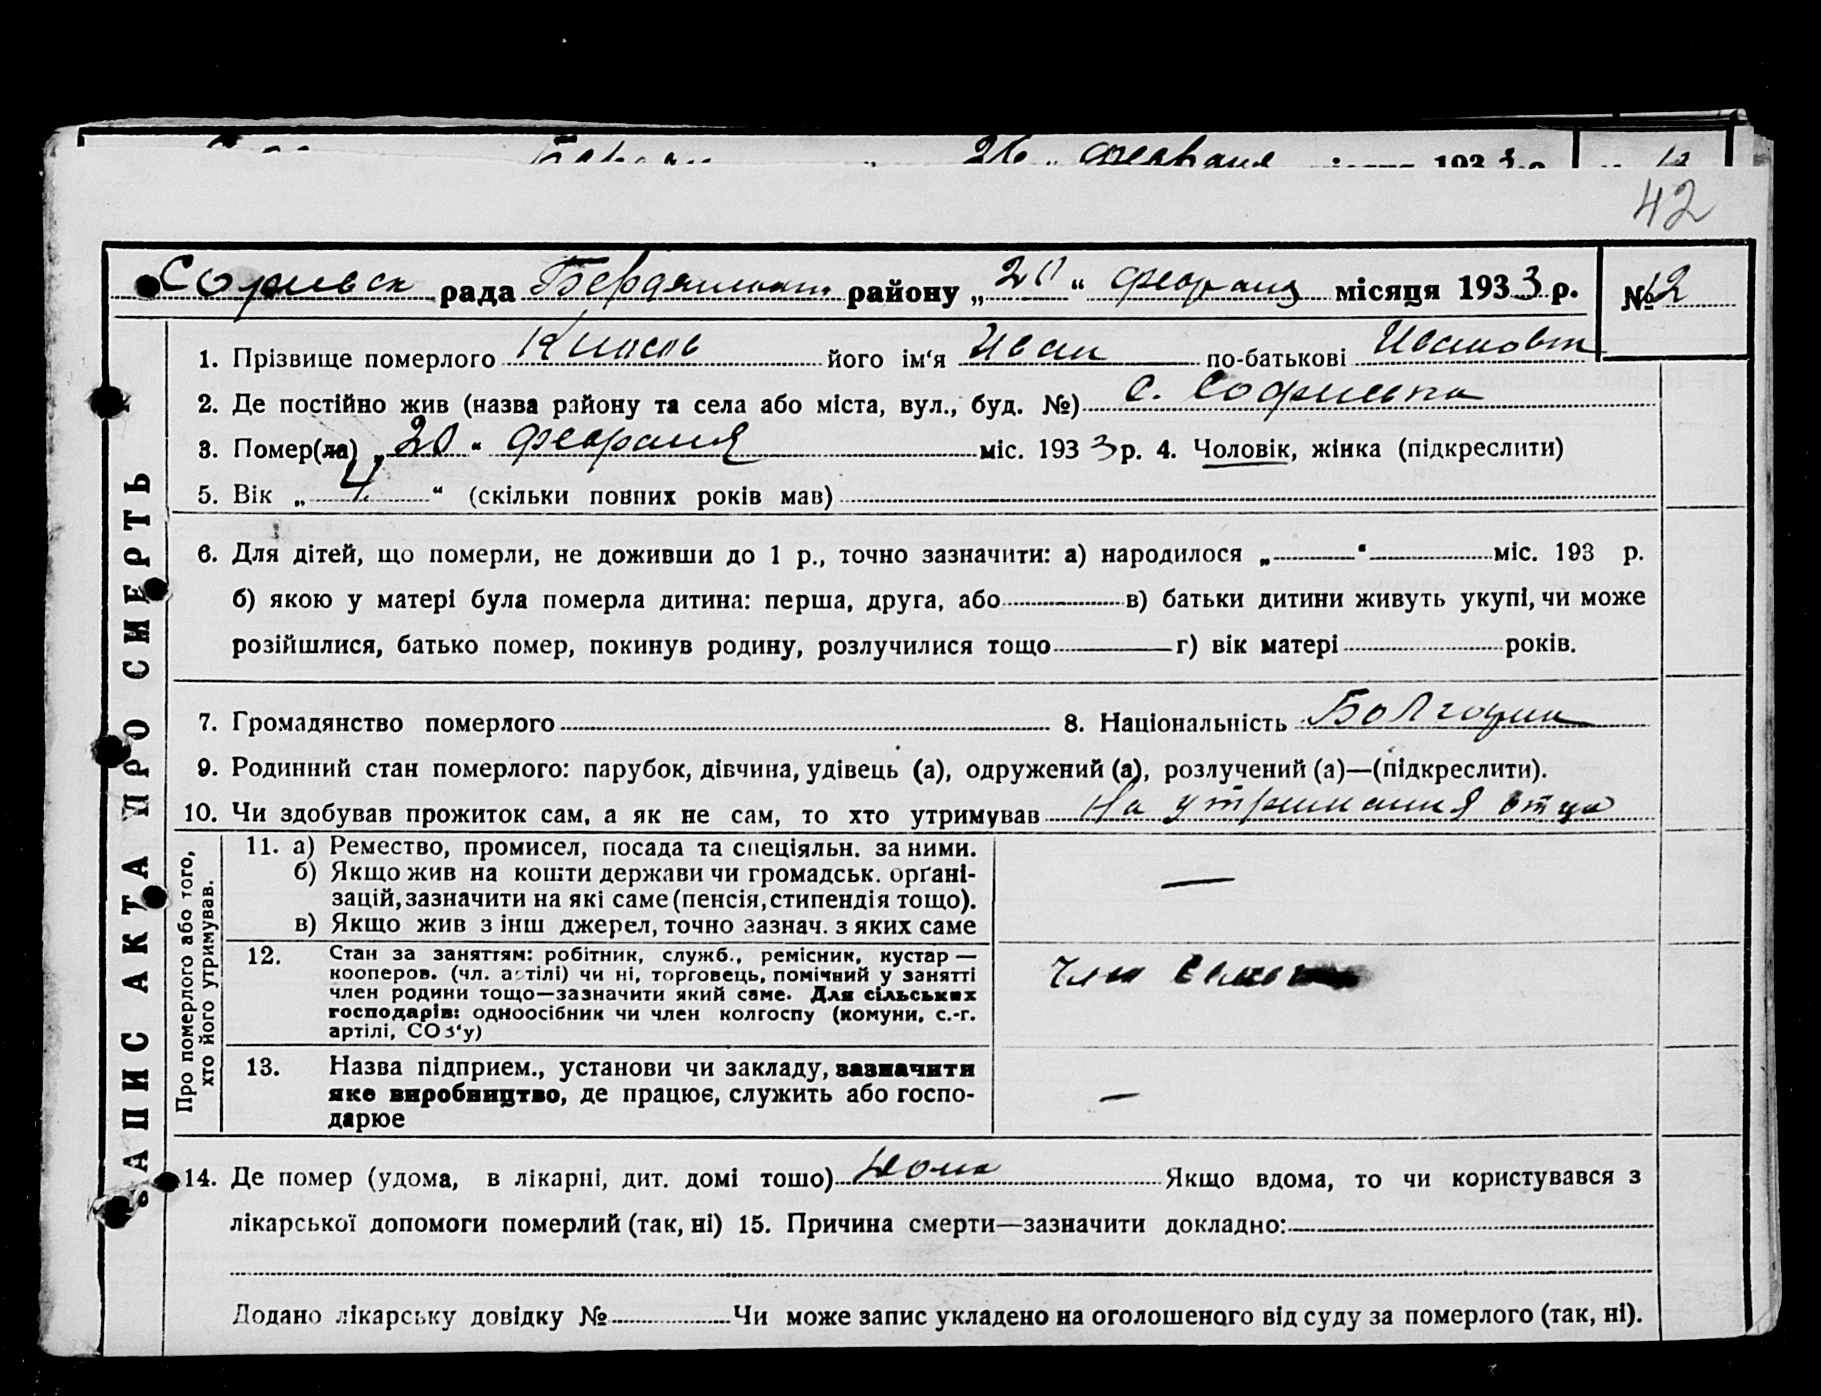 26 февраля місяця 1933 р. № 12
42
Софиевск рада Бердянськ. району „20“ февраля місяця 1933 р. № 12
1. Прізвище померлого його ім‘я Иван по-батькові Иванович
2. Де постійно жив (назва району та села або міста, вул., буд. №) с. Софиевка
3. Помер(ла) „20“ февраля міс. 1933 р. 4. Чоловік, жінка (підкреслити)
5. Вік „4“ (скільки повних років мав)
6. Для дітей, що померли, не доживши до 1 р., точно зазначити: а) народилося „ “ міс. 193 р.
б) якою у матері була померла дитина: перша, друга, або в) батьки дитини живуть укупі, чи може
розійшлися, батько помер, покинув родину, розлучилися тощо г) вік матері років.
7. Громадянство померлого 8. Національність Болгарин
9. Родинний стан померлого: парубок, дівчина, удівець (а), одружений (а), розлучений (а)—(підкреслити).
10. Чи здобував прожиток сам, а як не сам, то хто утримував На утримания отца
11. а) Ремество, промисел, посада та спеціяльн. за ними.
б) Якщо жив на кошти держави чи громадськ. орґані-
зацій, зазначити на які саме (пенсія, стипендія тощо).
в) Якщо жив з інш джерел, точно зазнач. з яких саме
—
12. Стан за заняттям: робітник, служб., ремісник, кустар —
кооперов. (чл. артілі) чи ні, торговець, помічний у занятті
член родини тощо—зазначити який саме. Для сільських
господарів: одноосібник чи член колгоспу (комуни, с.-г.
артілі, СОЗ‘у)
член
13. Назва підприєм., установи чи закладу, зазначити
яке виробництво, де працює, служить або госпо-
дарює
—
14. Де помер (удома, в лікарні, дит. домі тошо) дома Якщо вдома, то чи користувався з
лікарської допомоги померлий (так, ні) 15. Причина смерти—зазначити докладно:
Додано лікарську довідку № Чи може запис укладено на оголошеного від суду за померлого (так, ні).
ЗАПИС АКТА ПРО СМЕРТЬ
Про померлого або того,
хто його утримував.